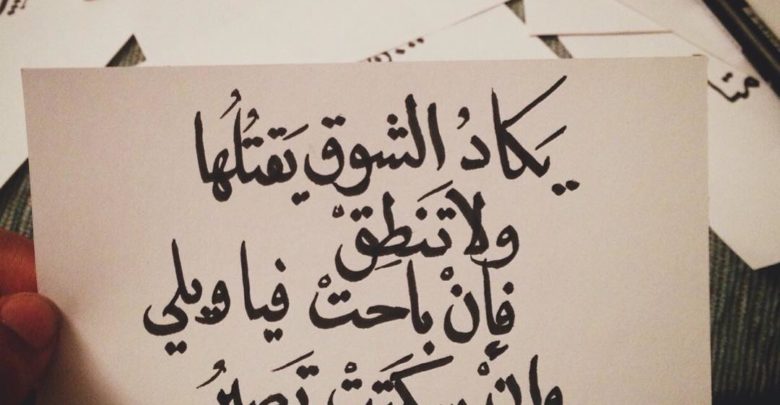 يكادُ الشوق يَقتُلُها
ولا تَنطِقْ
فإنْ باحتْ فيا ويلي
وإنْ سكتَتْ تَصيرُ